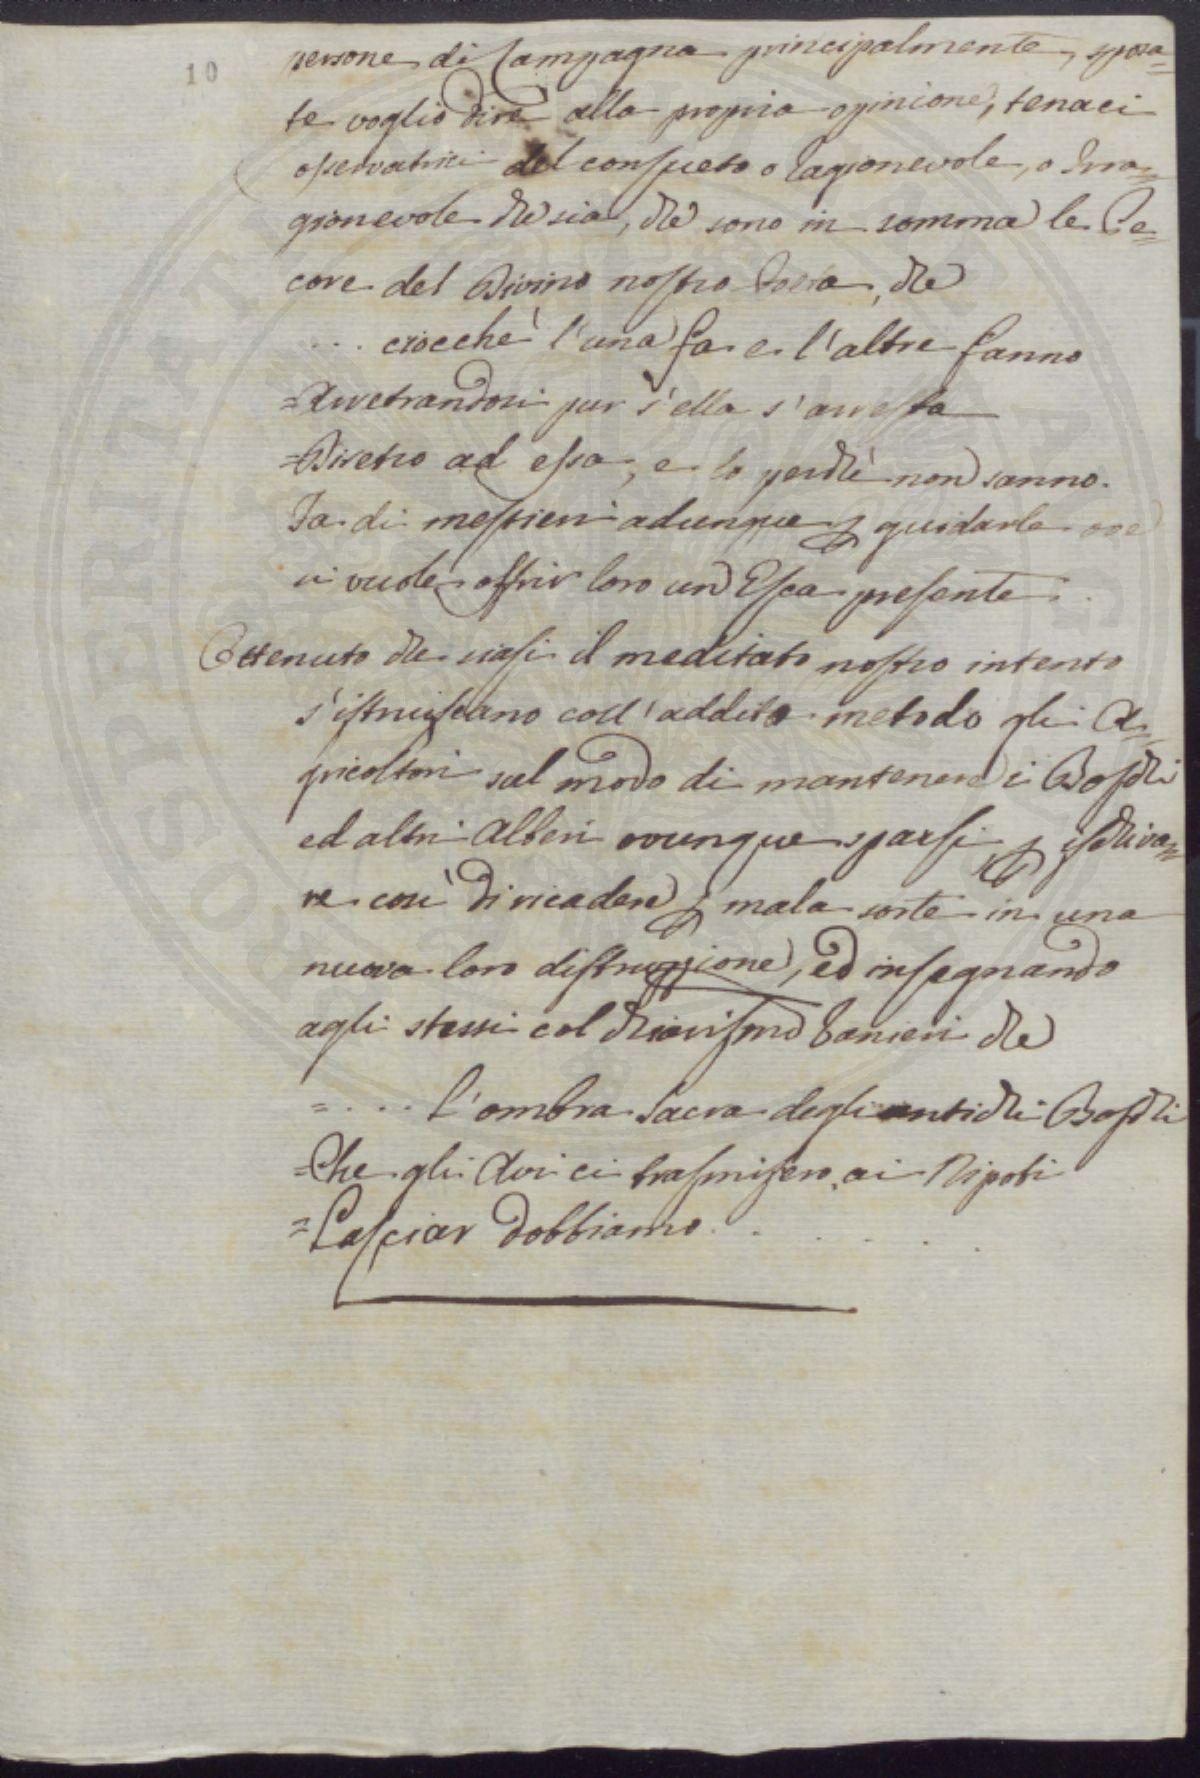 10
persone di Campagna principalmente, sposa=
te voglio dire alla propria opinione, tenaci
osservatrici del consueto o Ragionevole, o Irra=
gionevole che sia, che sono in somma le Pe=
core del Divino nostro Poeta, che
... ciocchè l'una fa e l'altre fanno
=Arretrandosi pur s'ella s'arresta
=Diretro ad essa, e lo perchè non sanno.
Fa di mestieri adunque p guidarle ove
si vuole offrir loro un Esca presente.
Ottenuto che siasi il meditato nostro intento
s'istruiscano coll'addito metodo gli A=
gricoltori sul modo di mantenere i Boschi
ed altri Alberi ovunque sparsi p ischiva=
re così di ricadere p mala sorte in una
nuova loro distruzzione, ed insegnando
agli stessi col chiarissmo Ranieri che
=.... L'ombra Sacra degli antichi Boschi
=Che gli Avi ci trasmisero, ai Nipoti
=Lasciar dobbiamo. . . . . .